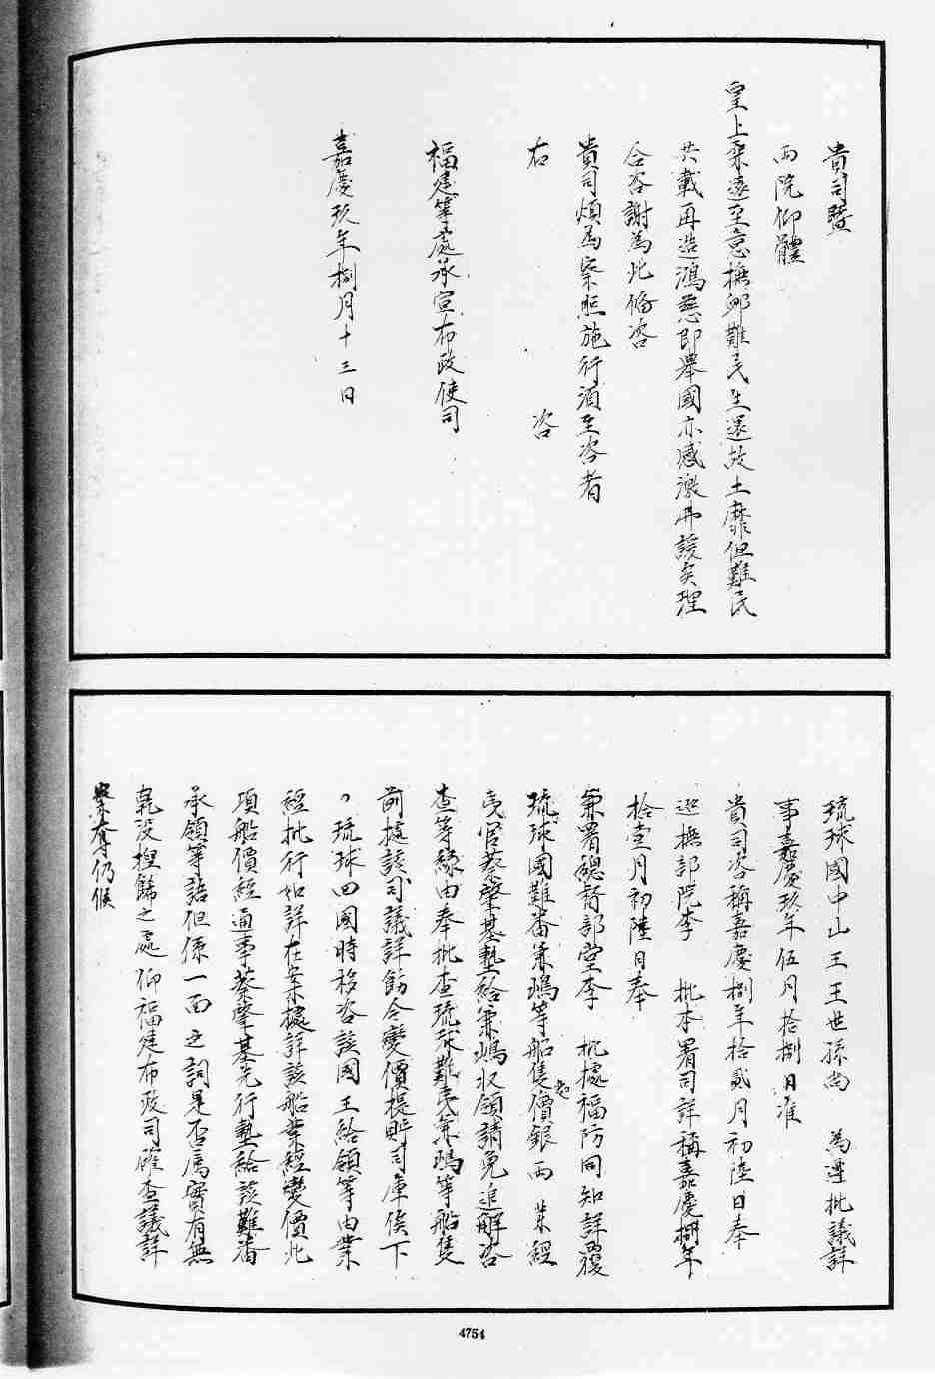 貴司暨
兩院仰體
皇上柔遠至意撫䘏難民生還故土靡但難民
共戴再造鴻慈即舉國亦感激弗諼矣理
合咨謝為此俻咨
貴司煩為察照施行湏至咨者
右　咨
福建等處承宣布政使司
嘉慶玖年捌月十三日
琉球國中山王王世孫尚　為遵批議詳
事嘉慶玖年伍月拾捌日准
貴司咨稱嘉慶捌年拾貳月初陸日奉
巡撫部院李　批本署司詳稱嘉慶捌年
拾壹月初陸日奉
兼署總督部堂李　批據福防同知詳覆
琉球國難番兼瑪等船隻價銀兩　業經
夷官蔡肇基墊給兼嶋收領請免追解咨
查等緣由奉批查琉球難夷兼瑪等船隻
前據該司議詳飭令變價提貯司庫俟下
次琉球回國時移咨該國王給領等由業
經批行如詳在案據詳該船業經變價此
項船價經通事蔡肇基先行墊給該難番
承領等語但係一面之詞是否屬實有無
乾沒捏餙之處仰福建布政司確查議詳
察奪仍候
4754